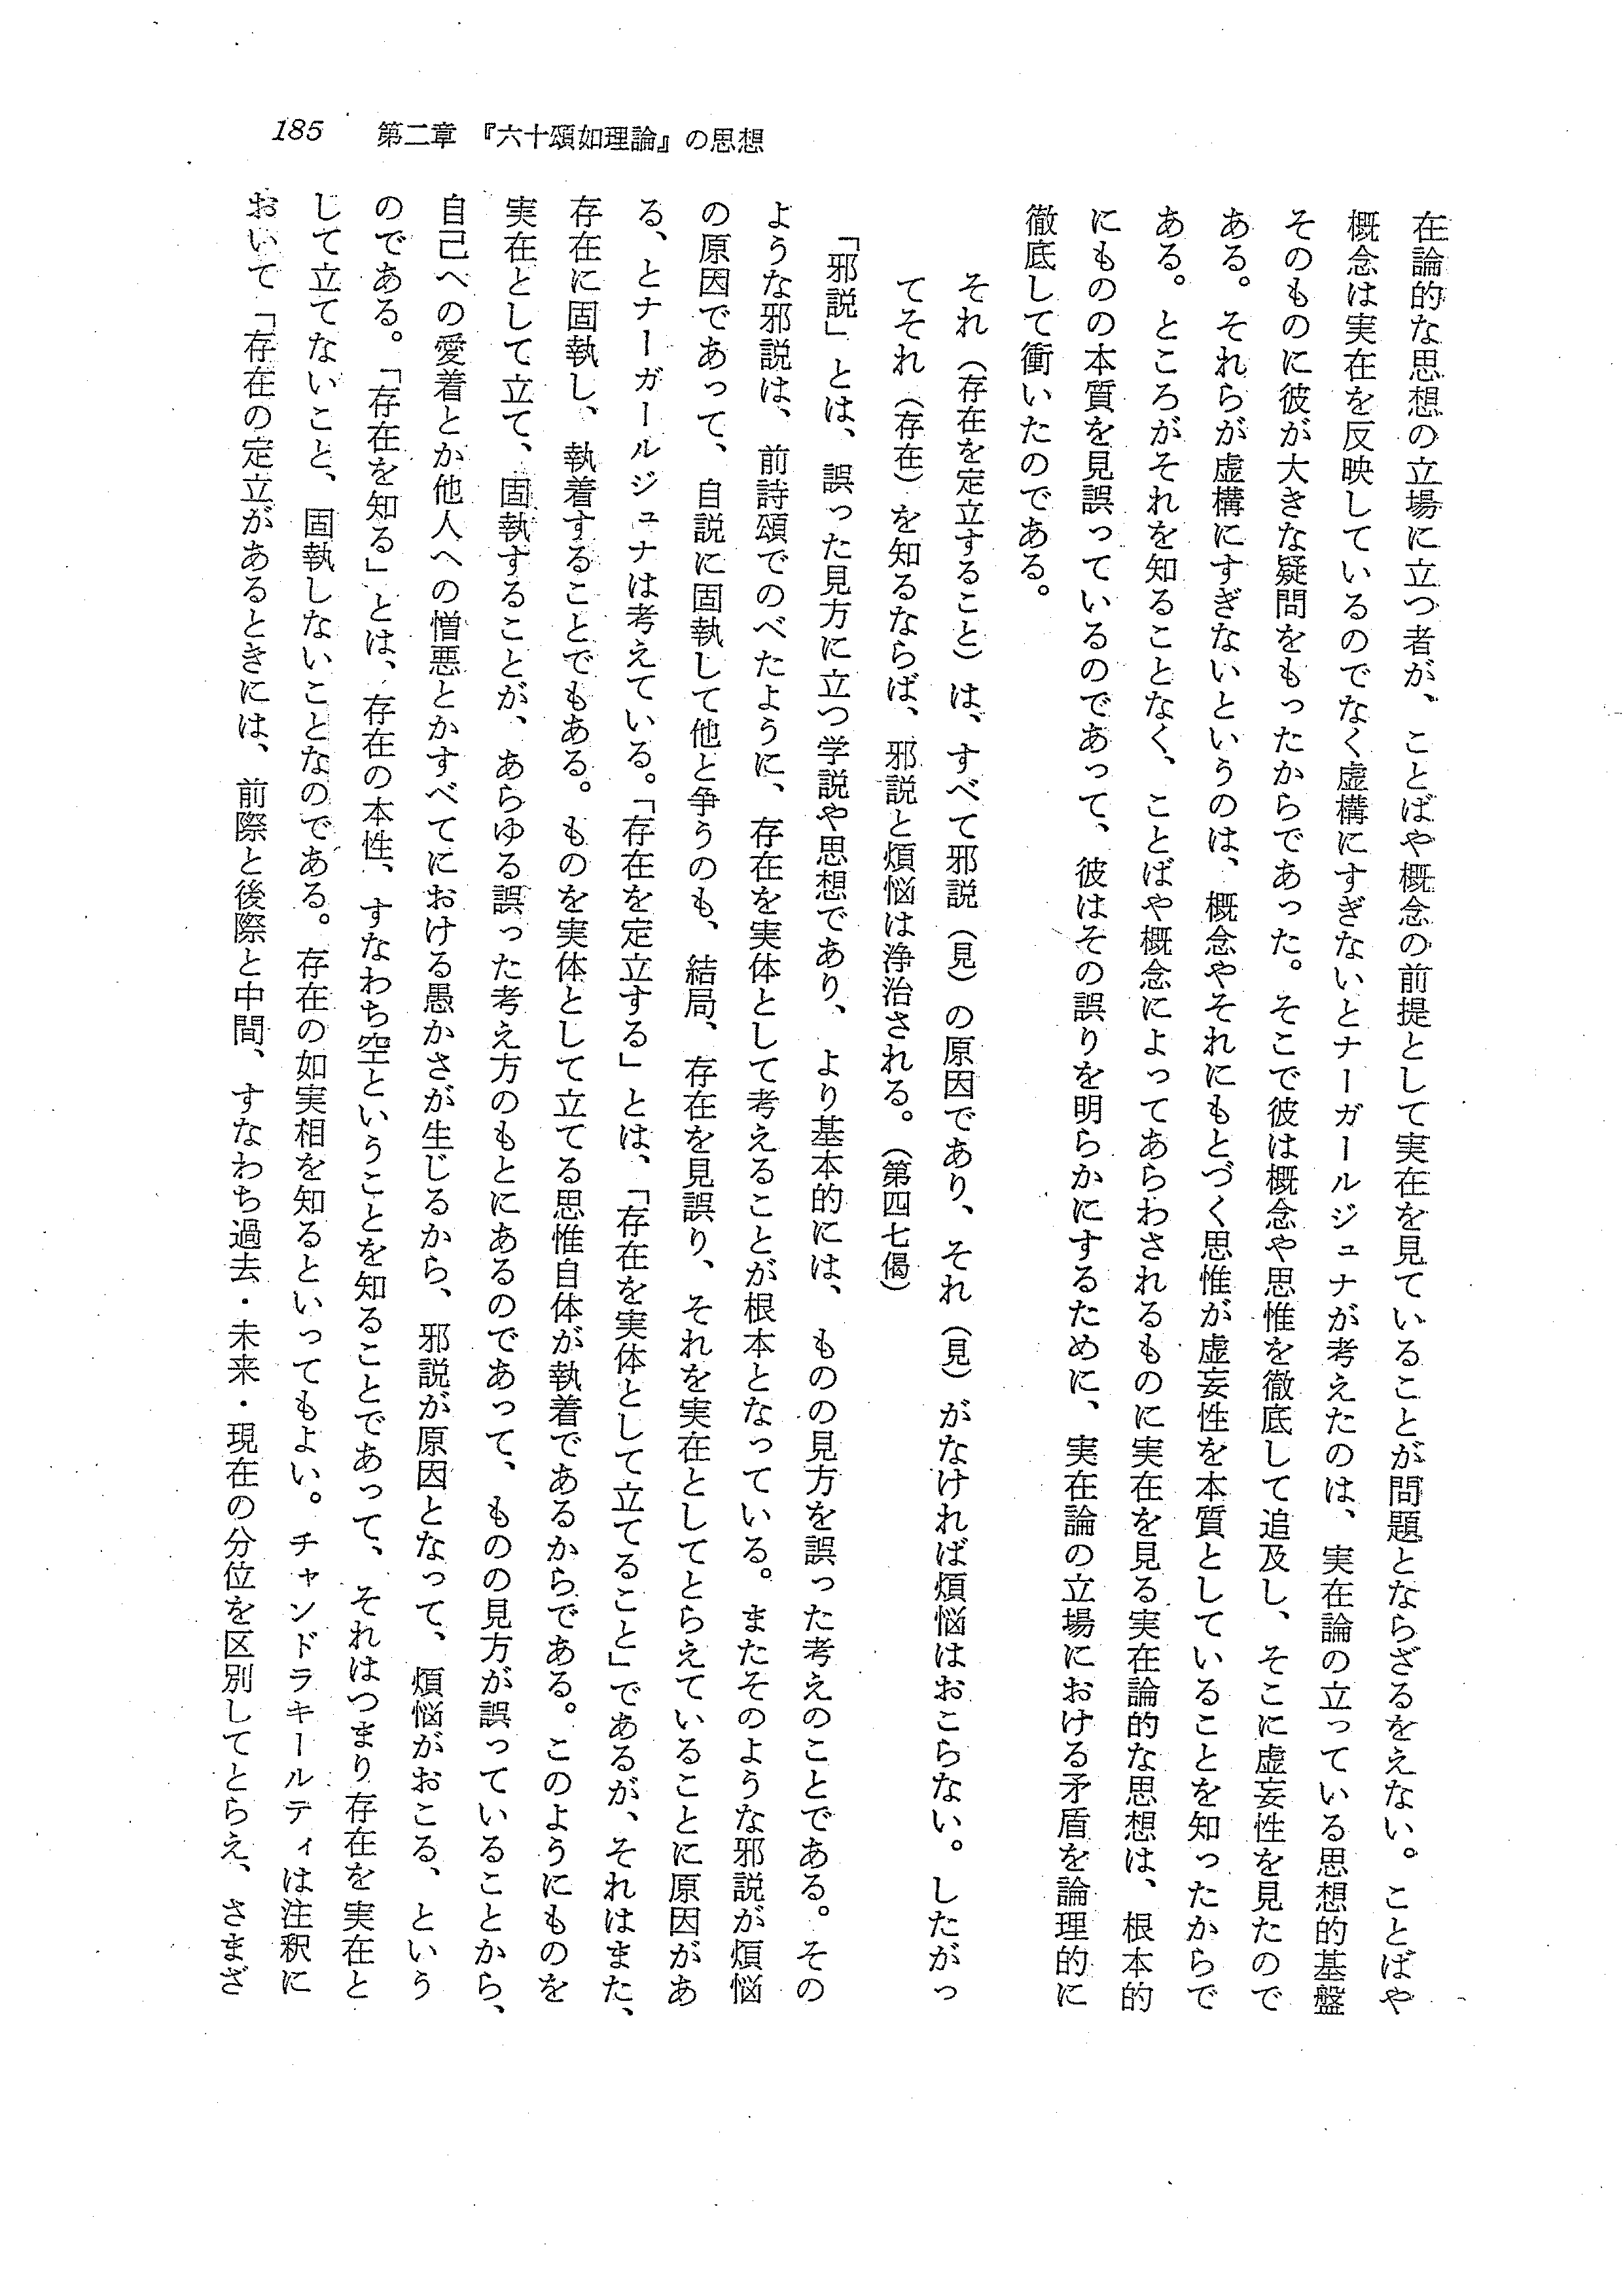 185　第二章　『六十頌如理論』の思想
在論的な思想の立場に立つ者が、ことばや概念の前提として実在を見ていることが問題とならざるをえない。ことばや
概念は実在を反映しているのでなく虚構にすぎないとナーガールジュナが考えたのは、実在論の立っている思想的基盤
そのものに彼が大きな疑問をもったからであった。そこで彼は概念や思惟を徹底して追及し、そこに虚妄性を見たので
ある。それらが虚構にすぎないというのは、概念やそれにもとづく思惟が虚妄性を本質としていることを知ったからで
ある。ところがそれを知ることなく、ことばや概念によってあらわされるものに実在を見る実在論的な思想は、根本的
にものの本質を見誤っているのであって、彼はその誤りを明らかにするために、実在論の立場における矛盾を論理的に
徹底して衝いたのである。
それ（存在を定立すること）は、すべて邪説（見）の原因であり、それ（見）がなければ煩悩はおこらない。したがっ
てそれ（存在）を知るならば、邪説と煩悩は浄治される。（第四七偈）
「邪説」とは、誤った見方に立つ学説や思想であり、より基本的には、ものの見方を誤った考えのことである。その
ような邪説は、前詩頌でのべたように、存在を実体として考えることが根本となっている。またそのような邪説が煩悩
の原因であって、自説に固執して他と争うのも、結局、存在を見誤り、それを実在としてとらえていることに原因があ
る、とナーガールジュナは考えている。「存在を定立する」とは、「存在を実体として立てること」であるが、それはまた、
存在に固執し、執着することでもある。ものを実体として立てる思惟自体が執着であるからである。このようにものを
実在として立て、固執することが、あらゆる誤った考え方のもとにあるのであって、ものの見方が誤っていることから、
自己への愛着とか他人への憎悪とかすべてにおける愚かさが生じるから、邪説が原因となって、煩悩がおこる、という
のである。「存在を知る」とは、存在の本性、すなわち空ということを知ることであって、それはつまり存在を実在と
して立てないこと、固執しないことなのである。存在の如実相を知るといってもよい。チャンドラキールティは注釈に
おいて「存在の定立があるときには、前際と後際と中間、すなわち過去・未来・現在の分位を区別してとらえ、さまざ